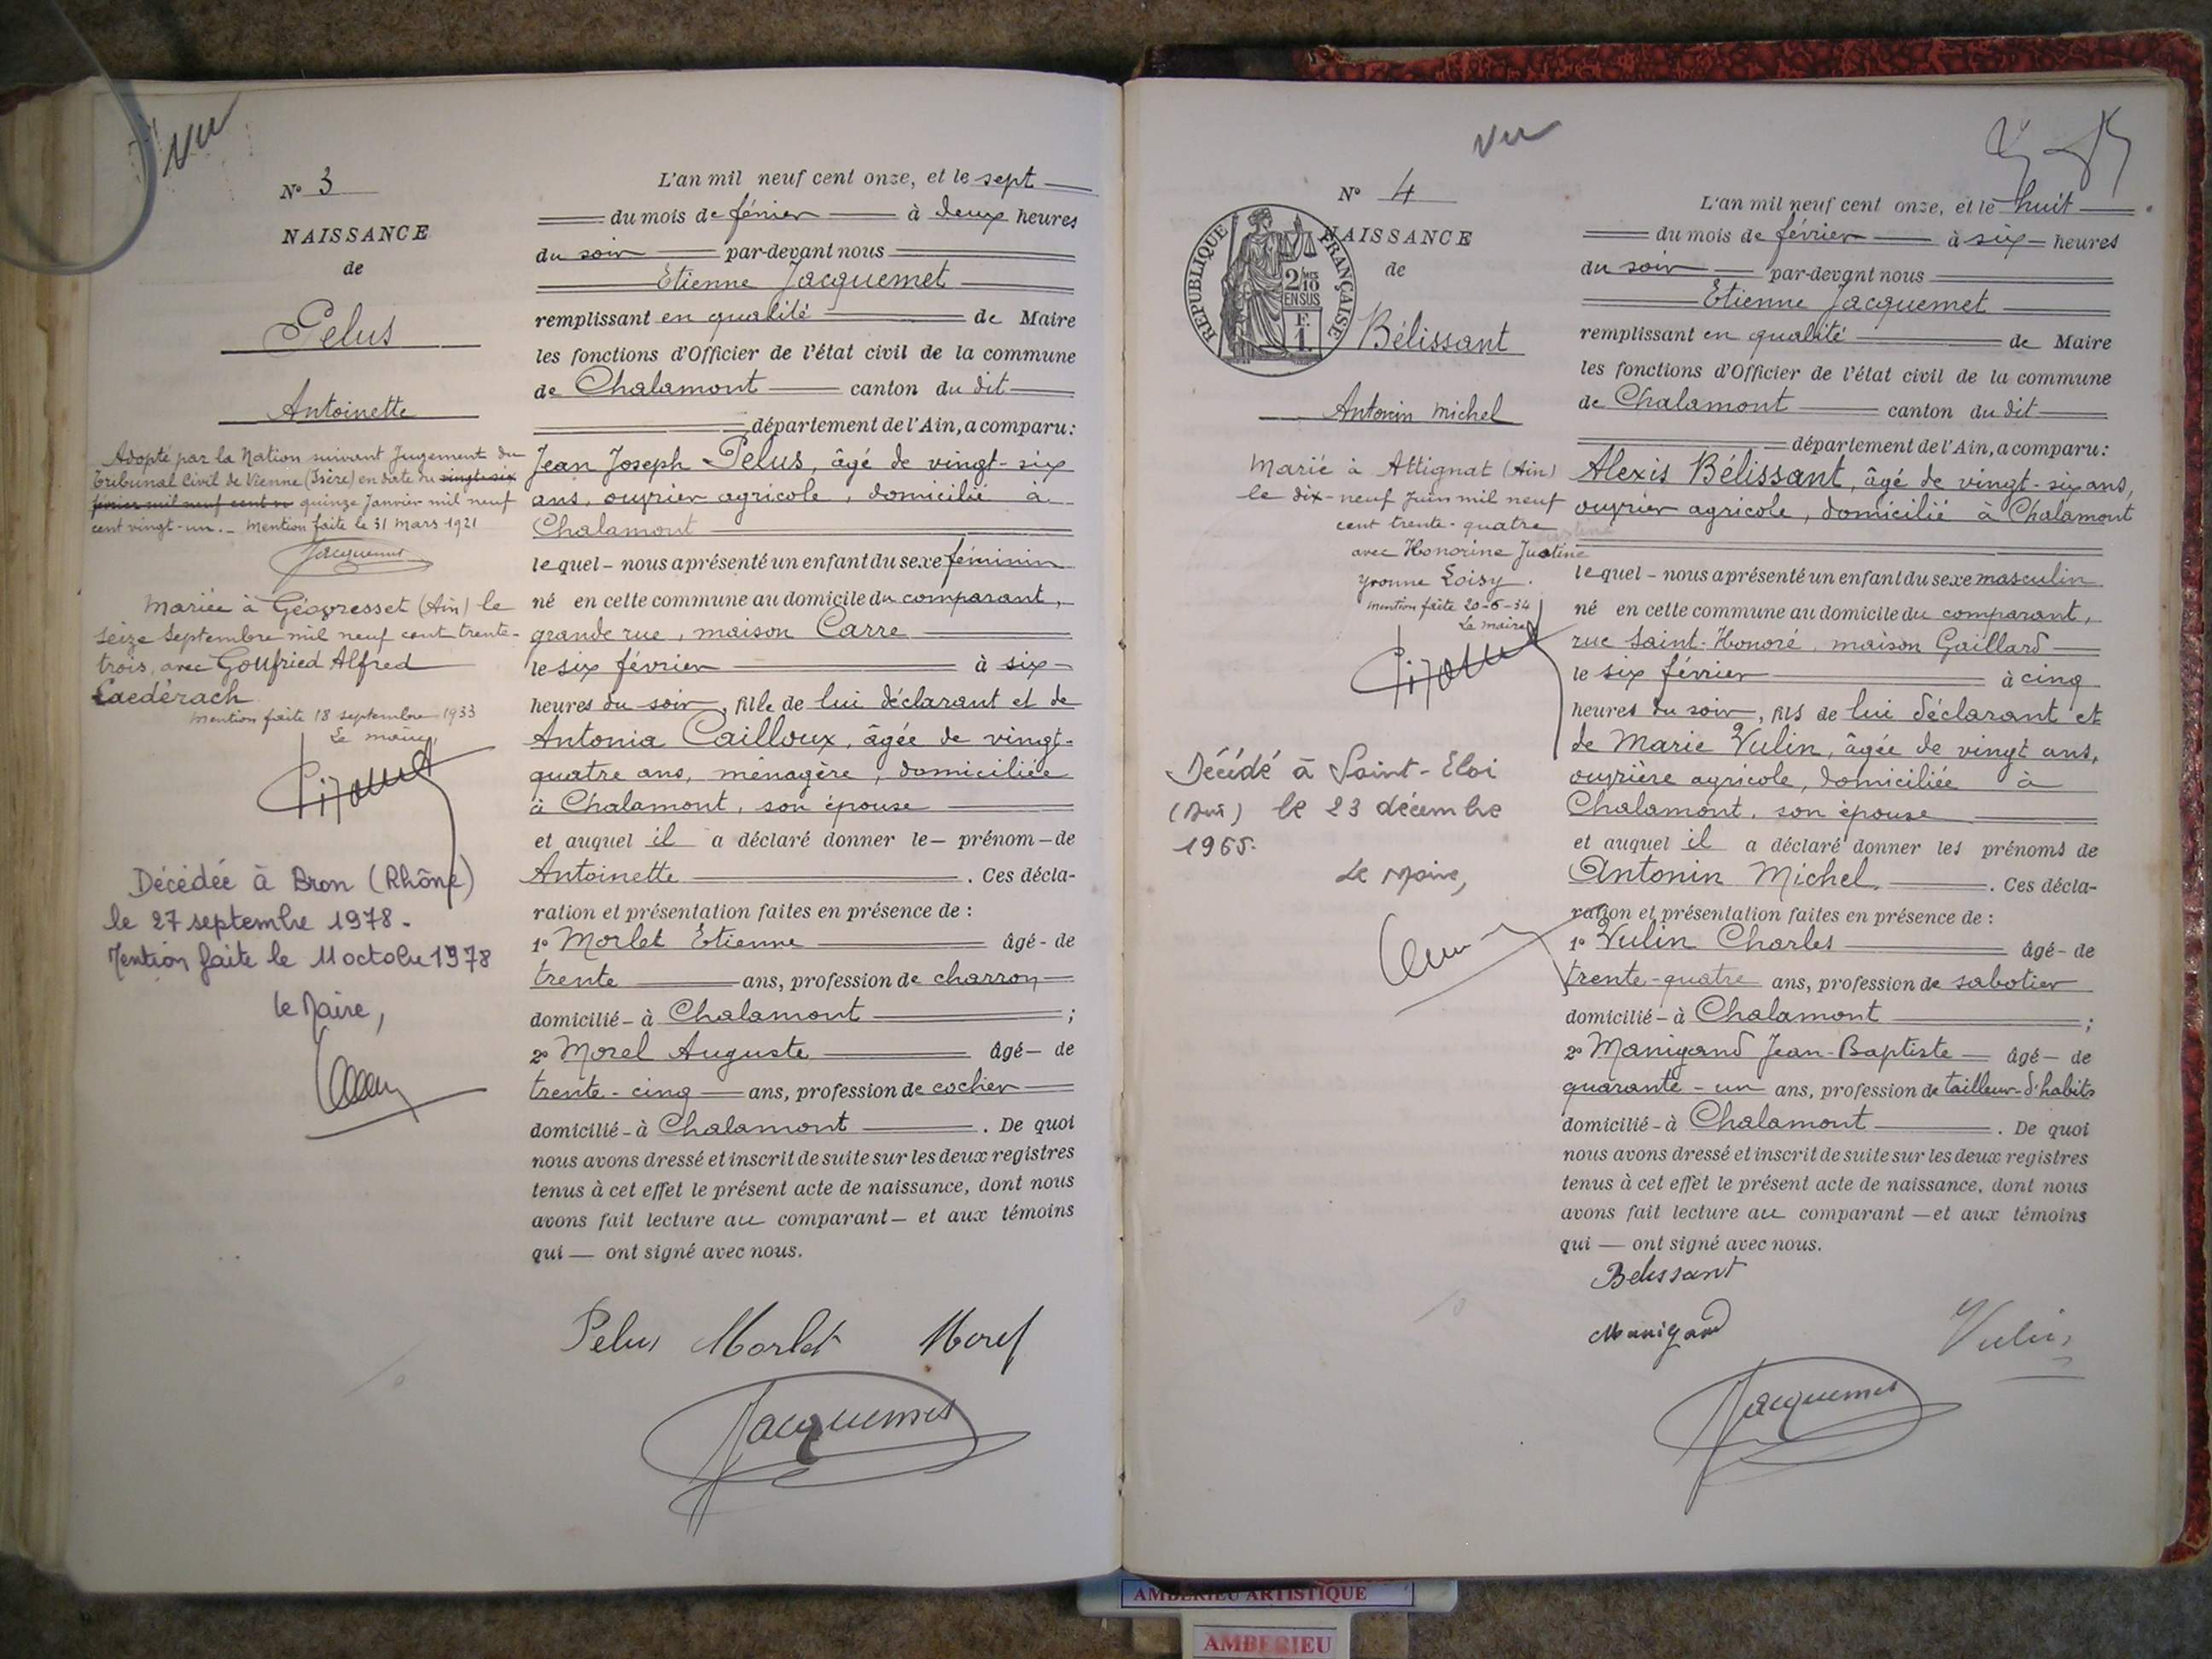 Vu
N° 3
NAISSANCE
de
Pelus
Antoinette
Adopté par la Nation suivant Jugement du
Tribunal Civil de Vienne (Isère) en date du vingt-six
février mil neuf cent quinze Janvier mil neuf
cent vingt-un. - Mention faite le 31 Mars 1921
Jacquemet
Mariée à Géovresset (Ain) le
seize Septembre mil neuf cent trente-
trois, avec Gottfried Alfred
Laedérach
Mention faite 18 septembre 1933
Le maire,
Décédée à Bron (Rhône)
le 27 septembre 1978 -
Mention faite le 11 octobre 1978
le Maire,
L'an mil neuf cent onze, et le sept
du mois de février à deux heures
du soir par-devant nous
Etienne Jacquemet
remplissant en qualité de Maire
les fonctions d'Officier de l'état civil de la commune
de Chalamont canton du dit
département de l'Ain, a comparu:
Jean Joseph Pelus, âgé de vingt-six
ans, ouvrier agricole, domicilié à
Chalamont
lequel - nous a présenté un enfant du sexe féminin
né en cette commune au domicile du comparant,
grande rue, maison Carre
le six février à six
heures du soir, fille de lui déclarant et de
Antonia Cailloux, âgée de vingt-
quatre ans, ménagère, domiciliée
à Chalamont, son épouse
et auquel il a déclaré donner le - prénom - de
Antoinette . Ces décla-
ration et présentation faites en présence de :
1° Morlet Etienne âgé - de
trente ans, profession de charron
domicilié - à Chalamont ;
2° Morel Auguste âgé - de
trente-cinq ans, profession de cocher
domicilié - à Chalamont . De quoi
nous avons dressé et inscrit de suite sur les deux registres
tenus à cet effet le présent acte de naissance, dont nous
avons fait lecture au comparant - et aux témoins
qui — ont signé avec nous.
Pelus Morlet Morel
Jacquemet
Vu
N° 4
NAISSANCE
de
REPUBLIQUE FRANÇAISE
2/10 MES
EN SUS
F.
1.
Bélissant
Antonin Michel
Marié à Attignat (Ain)
le dix-neuf Juin mil neuf
cent trente-quatre
avec Honorine Justine
Yvonne Loisy.
Mention faite 20-6-34
Le maire
Décédé à Saint-Eloi
(Ain) le 23 décembre
1965.
Le Maire,
L'an mil neuf cent onze, et le huit
du mois de février à six heures
du soir par-devant nous
Etienne Jacquemet
remplissant en qualité de Maire
les fonctions d'Officier de l'état civil de la commune
de Chalamont canton du dit
département de l'Ain, a comparu:
Alexis Bélissant, âgé de vingt-six ans,
ouvrier agricole, domicilié à Chalamont
lequel - nous a présenté un enfant du sexe masculin
né en cette commune au domicile du comparant,
rue Saint-Honoré, maison Gaillard
le six février à cinq
heures du soir, fils de lui déclarant et
de Marie Vulin, âgée de vingt ans,
ouvrière agricole, domiciliée à
Chalamont, son épouse
et auquel il a déclaré donner les prénoms de
Antonin Michel . Ces décla-
ration et présentation faites en présence de :
1° Vulin Charles âgé - de
trente-quatre ans, profession de sabotier
domicilié - à Chalamont ;
2° Manigand Jean-Baptiste âgé - de
quarante-un ans, profession de tailleur d'habits
domicilié - à Chalamont . De quoi
nous avons dressé et inscrit de suite sur les deux registres
tenus à cet effet le présent acte de naissance, dont nous
avons fait lecture au comparant — et aux témoins
qui — ont signé avec nous.
Belissant
Manigand Vulin
Jacquemet
AMBERIEU ARTISTIQUE
AMBERIEU